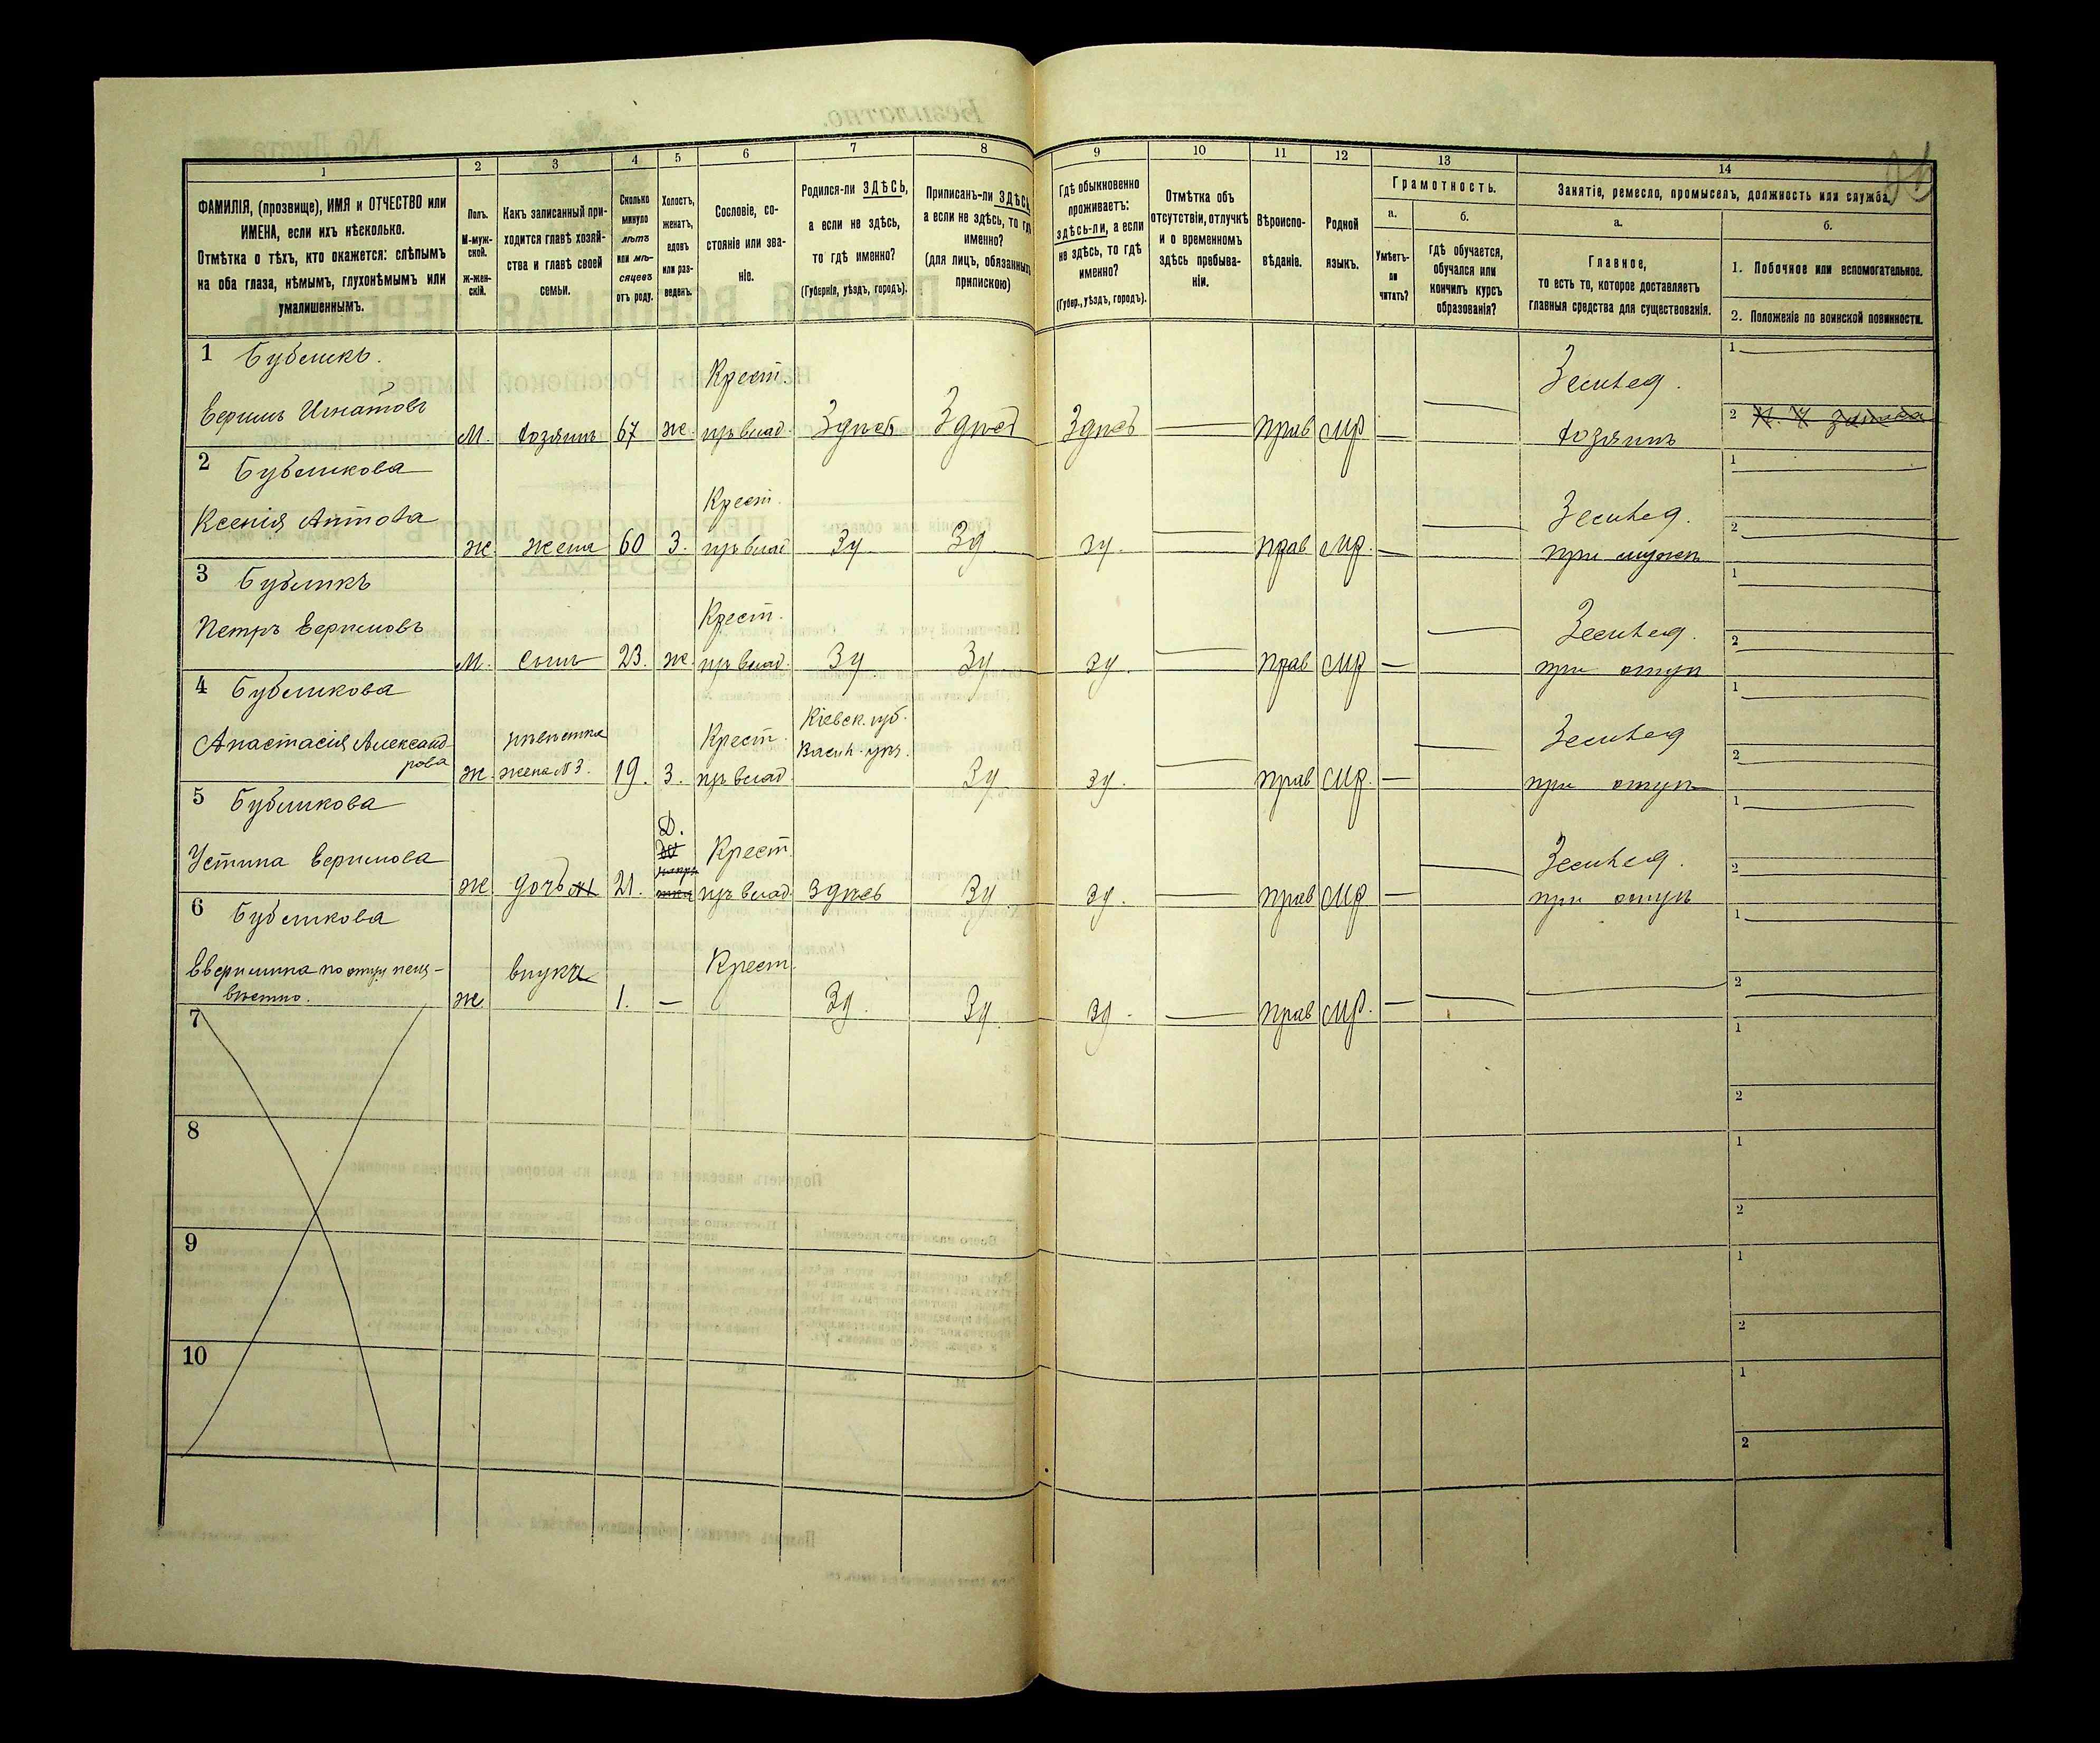 1 2 3 4 5 6 7 8 9 10 11 12 13 14
ФАМИЛІЯ, (прозвище), ИМЯ и ОТЧЕСТВО или
ИМЕНА, если ихъ нѣсколько.
Отмѣтка о тѣхъ, кто окажется: слѣпымъ
на оба глаза, нѣмымъ, глухонѣмымъ или
умалишеннымъ.
Полъ.
М-муж-
ской.
ж-жен-
скій.
Какъ записанный при-
ходится главѣ хозяй-
ства и главѣ своей
семьи.
Сколько
минуло
лѣтъ
или мѣ-
сяцевъ
отъ роду.
Холостъ,
женатъ,
вдовъ
или раз-
веденъ.
Сословіе, со-
стояніе или зва-
ніе.
Родился-ли ЗДѢСЬ,
а если не здѣсь,
то гдѣ именно?
(Губернія, уѣздъ, городъ).
Приписанъ-ли ЗДѢСЬ
а если не здѣсь, то гдѣ
именно?
(для лицъ, обязанныхъ
припискою)
Гдѣ обыкновенно
проживаетъ:
здѣсь-ли, а если
не здѣсь, то гдѣ
именно?
(Губер., уѣздъ, городъ).
Отмѣтка объ
отсутствіи, отлучкѣ
и о временномъ
здѣсь пребыва-
ніи.
Вѣроиспо-
вѣданіе.
Родной
языкъ.
Грамотность.
а.
Умѣетъ-
ли
читать?
б.
гдѣ обучается,
обучался или
кончилъ курсъ
образованія?
Занятіе, ремесло, промыселъ, должность или служба.
а.
Главное,
то есть то, которое доставляетъ
главныя средства для существованія.
б.
1. Побочное или вспомогательное.
2. Положеніе по воинской повинности.
1 Бубликъ.
Крест. Землед. 1
Ефимъ Игнатовъ
М. хозяинъ 67 ж. пр влад. Здѣсь Здѣсь Здѣсь прав мр хозяинъ 2
2 Бубликова
Крест. Землед. 1
Ксенія
ж. жена 60 з. пр влад Зд Зд зд. прав мр. при мужѣ 2
3 Бубликъ
Крест. Землед. 1
Петръ Ефимовъ
М. сынъ 23. ж. пр влад. Зд Зд. зд. прав мр при отцѣ 2
4 Бубликова
Кіевск. губ.
Васил. уѣз.
Крест. Землед 1
Анастасія Александ-
рова
невѣстка
ж. жена №3. 19. з. пр влад. Зд зд. прав мр. при отцѣ 2
5 Бубликова
Д.
Крест. Землед. 1
Устина Ефимова
ж дочь 21. пр влад. Здѣсь Зд зд. прав мр. при отцѣ 2
6 Бубликова
Крест. 1
по отцу неиз-
вѣстно.
внука
ж. 1. Зд. Зд. зд. прав мр. 2
7 1
2
8 1
2
9 1
2
10 1
2